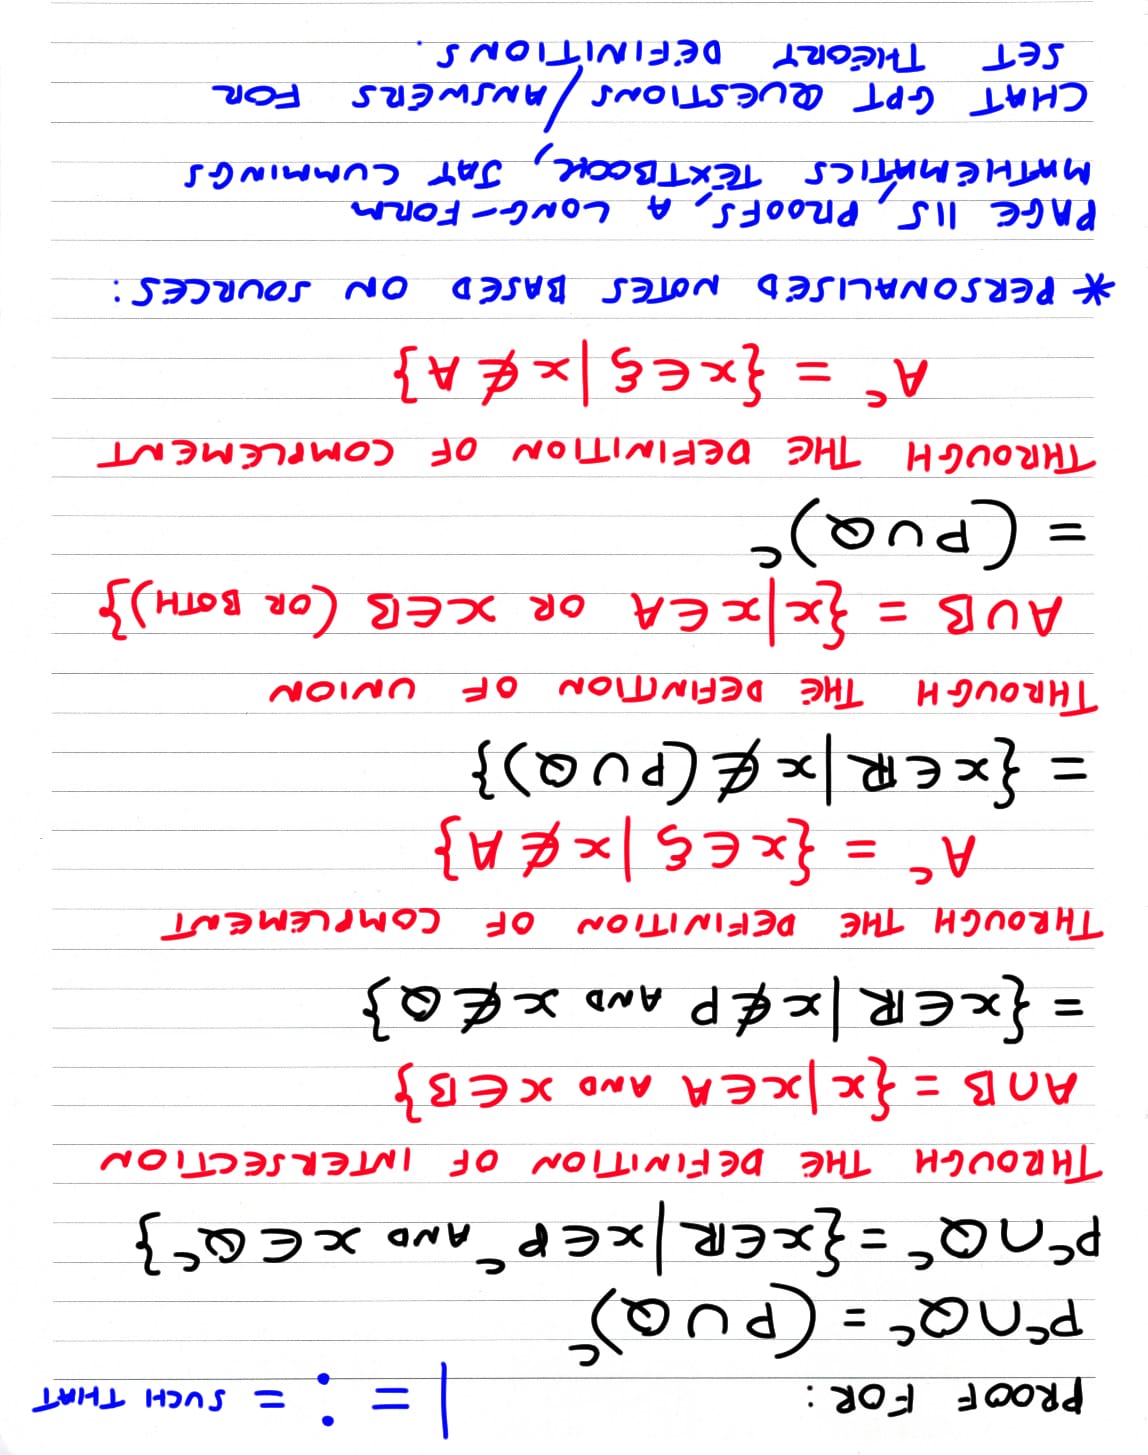 PROOF FOR: | = : = SUCH THAT
Pᶜ∩Qᶜ = (P∪Q)ᶜ
Pᶜ∩Qᶜ = {x∈ℝ|x∈Pᶜ AND x∈Qᶜ}
THROUGH THE DEFINITION OF INTERSECTION
A∩B = {x|x∈A AND x∈B}
= {x∈ℝ|x∉P AND x∉Q}
THROUGH THE DEFINITION OF COMPLEMENT
Aᶜ = {x∈ξ|x∉A}
= {x∈ℝ|x∉(P∪Q)}
THROUGH THE DEFINITION OF UNION
A∪B = {x|x∈A OR x∈B (OR BOTH)}
= (P∪Q)ᶜ
THROUGH THE DEFINITION OF COMPLEMENT
Aᶜ = {x∈ξ|x∉A}
* PERSONALISED NOTES BASED ON SOURCES:
PAGE 115, PROOFS, A LONG-FORM
MATHEMATICS TEXTBOOK, JAY CUMMINGS
CHAT GPT QUESTIONS/ANSWERS FOR
SET THEORY DEFINITIONS.